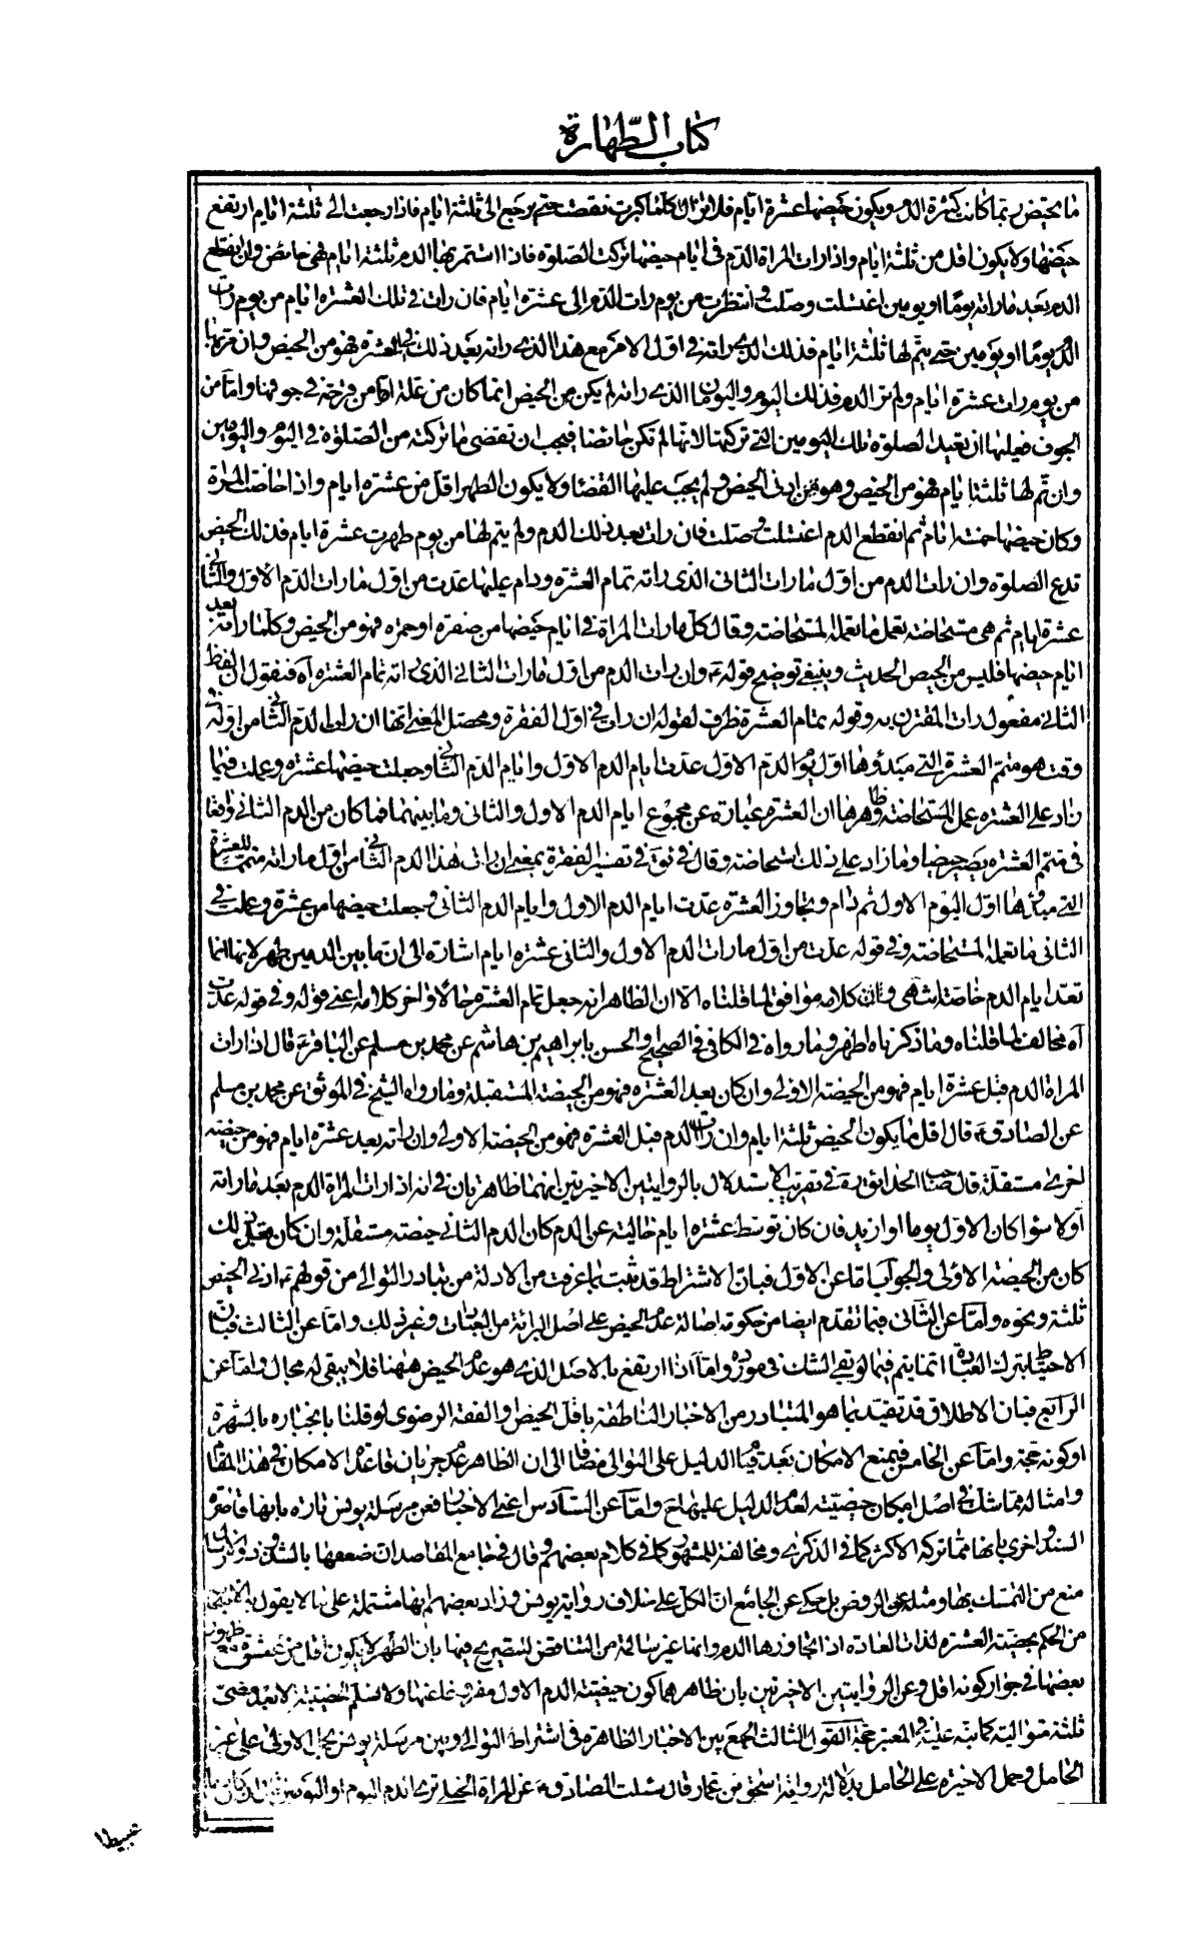 كتاب الطهارة
ما تحيض ربما كانت كثيرة الدم ويكون حيضها عشرة ايام فلا تزال كلما كبرت نقصت حتى يرجع الى ثلثة ايام فاذا رجعت الى ثلثة ايام ارتفع
حيضها ولا يكون اقل من ثلثة ايام واذا رات المراة الدم في ايام حيضها تركت الصلوة فاذا استمر بها الدم ثلثة ايام فهى حائض وان انقطع
الدم بعد ما راته يوما او يومين اغتسلت وصلت وانتظرت من يوم رات الدم الى عشرة ايام فان رات في تلك العشرة ايام من يوم رات
الدم يوما او يومين حتى يتم لها ثلثة ايام فذلك الذى راته في اول الامر مع هذا الذى راته بعد ذلك في العشرة فهو من الحيض وان مر بها
من يوم رات عشرة ايام ولم تر الدم فذلك اليوم واليومان الذى راته لم يكن من الحيض انما كان من علة اما من قرحة في جوفها واما من
الجوف فعليها ان تعيد الصلوة تلك اليومين التى تركتها لانها لم تكن حائضا فيجب ان تقضى ما تركته من الصلوة في اليوم واليومين
وان تم لها ثلثة ايام فهو من الحيض وهو من ادنى الحيض ولم يجب عليها القضاء ولا يكون الطهر اقل من عشرة ايام واذا حاضت المراة
وكان حيضها خمسة ايام ثم انقطع الدم اغتسلت وصلت فان رات بعد ذلك الدم ولم يتم لها من يوم طهرت عشرة ايام فذلك الحيض
تدع الصلوة وان رات الدم من اول ما رات الثانى الذى راته تمام العشرة ودام عليها عدت من اول ما رات الدم الاول والثاني
عشرة ايام ثم هى مستحاضة تعمل ما تعمله المستحاضة وقال كل ما رات المراة في ايام حيضها من صفرة او حمرة فهو من الحيض وكلما راته بعد
ايام حيضها فليس من الحيض الحديث وينبغى توضيح قوله ع وان رات الدم من اول ما رات الثانى الذى راته تمام العشرة اه فنقول ان لفظ
الثانى مفعول رات المقترن به وقوله تمام العشرة ظرف لقوله ان رات في اول الفقرة ومحصل المعنى انها ان رات الدم الثاني من اوله في
وقت هو متمم العشرة التى مبدؤها اول يوم الدم الاول عدت ايام الدم الاول وايام الدم الثاني وجعلت حيضها عشرة وعملت فيما
زاد على العشرة عمل المستحاضة وظاهرها ان العشرة عبارة عن مجموع ايام الدم الاول والثانى وما بينهما فما كان من الدم الثانى واقعا
في متمم العشرة يصير حيضا وما زاد على ذلك استحاضة وقال في تفسير الفقرة يعنى ان رات هذا الدم الثاني من اول ما راته متمما للعشرة
التى مبدئها اول اليوم الاول ثم دام وتجاوز العشرة عدت ايام الدم الاول وايام الدم الثانى وجعلت حيضها من عشرة وعملت في
الثانى ما تعمله المستحاضة وفي قوله عدت من اول ما رات الدم الاول والثانى عشرة ايام اشارة الى ان ما بين الدمين طهر لانها انما
تعد ايام الدم خاصة انتهى كلامه موافق لما قلناه الا ان الظاهر انه جعل تمام العشرة حالا واخر كلامه اعنى قوله وفي قوله عدت
اه مخالف لما قلناه وما ذكرناه اظهر وما رواه في الكافى في الصحيح او الحسن بابراهيم بن هاشم عن محمد بن مسلم عن الباقر ع قال اذا رات
المراة الدم قبل عشرة ايام فهو من الحيضة الاولى وان كان بعد العشرة فهو من الحيضة المستقبلة وما رواه الشيخ في الموثق عن محمد بن مسلم
عن الصادق ع قال اقل ما يكون الحيض ثلثة ايام وان رات الدم قبل العشرة فهو من الحيضة الاولى وان راته بعد عشرة ايام فهو من حيضة
اخرى مستقلة قال صاحب الحدائق ره في تقريب الاستدلال بالروايتين الاخيرتين انهما ظاهرتان في انه اذا رات المراة الدم بعد ما راته
اولا سواء كان الاول يوما او ازيد فان كان توسط عشرة ايام خالية عن الدم كان الدم الثانى حيضة مستقلة وان كان قبل ذلك
كان من الحيضة الاولى والجواب اما عن الاول فبان الاشتراط قد ثبت بما عرفت من الادلة من تبادر التوالى من قولهم ع ادنى الحيض
ثلثة ونحوه واما عن الثانى فبما تقدم ايضا من حكومة اصالة عدم الحيض على اصل البرائة من العبادات وغير ذلك واما عن الثالث فبان
الاحتياط بترك العبادة انما يتم فيما لو بقى الشك في مورده واما اذا ارتفع بالاصل الذى هو عدم الحيض ههنا فلا يبقى له مجال واما عن
الرابع فبان الاطلاق قد تقيد بما هو المتبادر من الاخبار الناطقة باقل الحيض والفقه الرضوى لو قلنا بانجباره بالشهرة
او كونه حجة واما عن الخامس فيمنع الامكان بعد قيام الدليل على التوالى مضافا الى ان الظاهر عدم جريان قاعدة الامكان في هذا المقام
وامثاله مما شك في اصل امكان حيضيته لعدم الدليل عليها ح واما عن السادس اعنى الاخبار فعن مرسلة يونس تارة بانها قاصرة
السند واخرى بانها مما تركه الاكثر كما في الذكرى ومخالفة للمشهور كما في كلام بعضهم وقال في جامع المقاصد ان ضعفها بالشذوذ
منع من التمسك بها ومثله عن الروض بل حكى عن الجامع ان الكل على خلاف رواية يونس وزاد بعضهم انها مشتملة على ما لا يقول به
من الحكم بحيضية العشرة لذات العادة اذا تجاوزها الدم وانها غير سالمة من التناقض لتصريح فيها بان الطهر لا يكون اقل من عشرة
بعضها في جواز كونه اقل وعن الروايتين الاخيرتين بان ظاهرهما كون حيضية الدم الاول مفروغا عنها ولا نسلم الحيضية الا بعد مضى
ثلثة متوالية كما نبه عليه في المعتبر حجة القول الثالث الجمع بين الاخبار الظاهرة في اشتراط التوالى وبين مرسلة يونس بحمل الاولى على غير
الحامل وحمل الاخيرة على الحامل بدلالة رواية اسحق بن عمار قال سئلت الصادق ع عن المراة الحبلى ترى الدم اليوم او اليومين
عبيطا